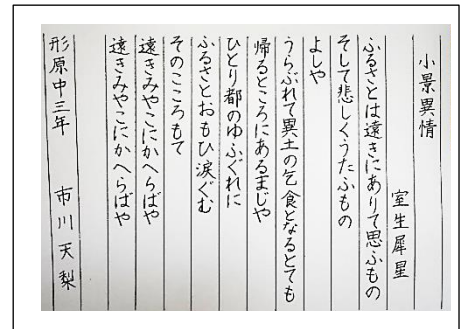 小景異情
室生犀星
ふるさとは遠きにありて思ふもの
そして悲しくうたふもの
よしや
うらぶれて異土の乞食となるとても
帰るところにあるまじや
ひとり都のゆふぐれに
ふるさとおもひ涙ぐむ
そのこころもて
遠きみやこにかへらばや
遠きみやこにかへらばや
形原中三年 市川天梨